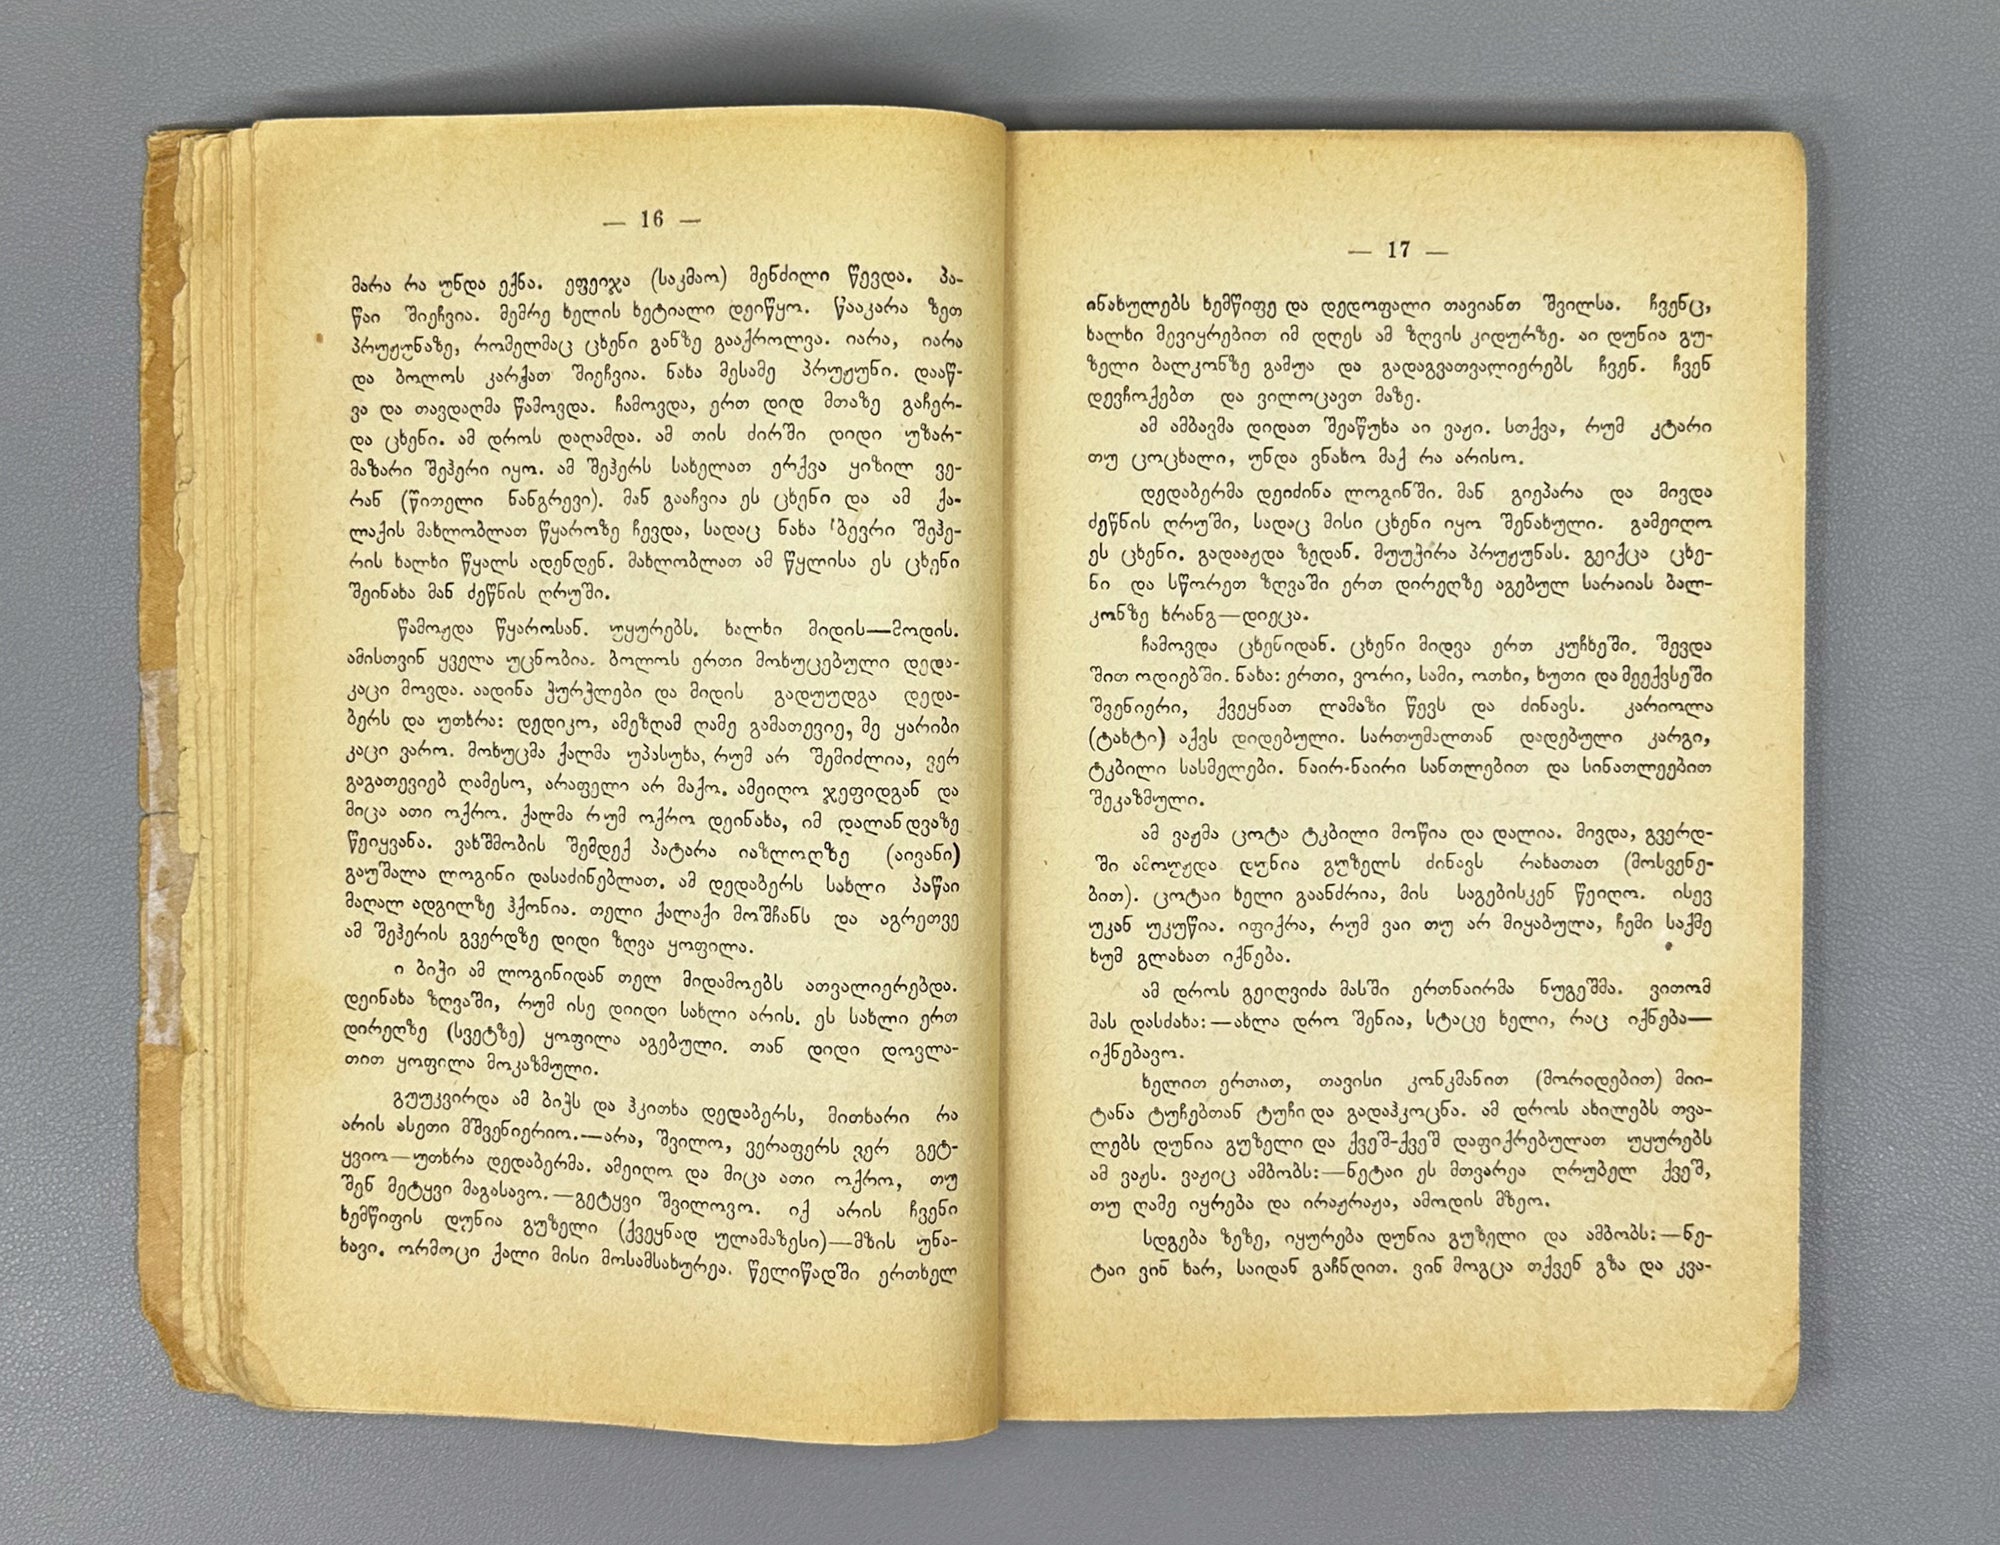 — 16 —
მარა რა უნდა ექნა. ეფეიჯა (საკმაო) მენძილი წევდა. პა-
წაი შიეჩვია. მემრე ხელის ხეტიალი დეიწყო. წააკარა ზეთ
პრუჟუნაზე, რომელმაც ცხენი განზე გააქროლვა. იარა, იარა
და ბოლოს კარქათ შიეჩვია. ნახა მესამე პრუჟუნი. დააწ-
ვა და თავდაღმა წამოვდა. ჩამოვდა, ერთ დიდ მთაზე გაჩერ-
და ცხენი. ამ დროს დაღამდა. ამ თის ძირში დიდი უზარ-
მაზარი შეჰერი იყო. ამ შეჰერს სახელათ ერქვა ყიზილ ვე-
რან (წითელი ნანგრევი). მან გააჩვია ეს ცხენი და ამ ქა-
ლაქის მახლობლათ წყაროზე ჩევდა, სადაც ნახა ბევრი შეჰე-
რის ხალხი წყალს ადენდენ. მახლობლათ ამ წყლისა ეს ცხენი
შეინახა მან ძეწნის ღრუში.
წამოჟდა წყაროსან. უყურებს. ხალხი მიდის—მოდის.
ამისთვინ ყველა უცნობია. ბოლოს ერთი მოხუცებული დედა-
კაცი მოვდა. აადინა ჭურჭლები და მიდის გადუუდგა დედა-
ბერს და უთხრა: დედიკო, ამეზღამ ღამე გამათევიე, მე ყარიბი
კაცი ვარო. მოხუცმა ქალმა უპასუხა, რუმ არ შემიძლია, ვერ
გაგათევიებ ღამესო, არაფელი არ მაქო. ამეიღო ჯეფიდგან და
მიცა ათი ოქრო. ქალმა რუმ ოქრო დეინახა, იმ დალანდვაზე
წეიყვანა. ვახშმობის შემდექ პატარა იაზლოღზე (აივანი)
გაუშალა ლოგინი დასაძინებლათ. ამ დედაბერს სახლი პაწაი
მაღალ ადგილზე ჰქონია. თელი ქალაქი მოშჩანს და აგრეთვე
ამ შეჰერის გვერდზე დიდი ზღვა ყოფილა.
ი ბიჭი ამ ლოგინიდან თელ მიდამოებს ათვალიერებდა.
დეინახა ზღვაში, რუმ ისე დიიდი სახლი არის. ეს სახლი ერთ
დირეღზე (სვეტზე) ყოფილა აგებული. თან დიდი დოვლა-
თით ყოფილა მოკაზმული.
გუუკვირდა ამ ბიჭს და ჰკითხა დედაბერს, მითხარი რა
არის ასეთი მშვენიერიო.—არა, შვილო, ვერაფერს ვერ გეტ-
ყვიო—უთხრა დედაბერმა. ამეიღო და მიცა ათი ოქრო, თუ
შენ მეტყვი მაგასავო.—გეტყვი შვილოვო. იქ არის ჩვენი
ხემწიფის დუნია გუზელი (ქვეყნად ულამაზესი)—მზის უნა-
ხავი. ორმოცი ქალი მისი მოსამსახურეა. წელიწადში ერთხელ
— 17 —
ინახულებს ხემწიფე და დედოფალი თავიანთ შვილსა. ჩვენც,
ხალხი მევიყრებით იმ დღეს ამ ზღვის კიდურზე. აი დუნია გუ-
ზელი ბალკონზე გამუა და გადაგვათვალიერებს ჩვენ. ჩვენ
დევჩოქებთ და ვილოცავთ მაზე.
ამ ამბავმა დიდათ შეაწუხა აი ვაჟი. სთქვა, რუმ კტარი
თუ ცოცხალი, უნდა ვნახო მაქ რა არისო.
დედაბერმა დეიძინა ლოგინში. მან გიეპარა და მივდა
ძეწნის ღრუში, სადაც მისი ცხენი იყო შენახული. გამეიღო
ეს ცხენი. გადააჟდა ზედან. მუუჭირა პრუჟუნას. გეიქცა ცხე-
ნი და სწორეთ ზღვაში ერთ დირეღზე აგებულ სარაიას ბალ-
კონზე ხრანგ—დიეცა.
ჩამოვდა ცხენიდან. ცხენი მიდვა ერთ კუჩხეში. შევდა
შით ოდიებში. ნახა: ერთი, ვორი, სამი, ოთხი, ხუთი და მეექვსეში
შვენიერი, ქვეყნათ ლამაზი წევს და ძინავს. კარიოლა
(ტახტი) აქვს დიდებული. სართუმალთან დადებული კარგი,
ტკბილი სასმელები. ნაირ-ნაირი სანთლებით და სინათლეებით
შეკაზმული.
ამ ვაჟმა ცოტა ტკბილი მოწია და დალია. მივდა, გვერდ-
ში ამოუჟდა დუნია გუზელს ძინავს რახათათ (მოსვენე-
ბით). ცოტაი ხელი გაანძრია, მის საგებისკენ წეიღო. ისევ
უკან უკუწია. იფიქრა, რუმ ვაი თუ არ მიყაბულა, ჩემი საქმე
ხუმ გლახათ იქნება.
ამ დროს გეიღვიძა მასში ერთნაირმა ნუგეშმა. ვითომ
მას დასძახა:—ახლა დრო შენია, სტაცე ხელი, რაც იქნება—
იქნებავო.
ხელით ერთათ, თავისი კონკმანით (მორიდებით) მიი-
ტანა ტუჩებთან ტუჩი და გადაჰკოცნა. ამ დროს ახილებს თვა-
ლებს დუნია გუზელი და ქვეშ-ქვეშ დაფიქრებულათ უყურებს
ამ ვაჟს. ვაჟიც ამბობს:—ნეტაი ეს მთვარეა ღრუბელ ქვეშ,
თუ ღამე იყრება და ირაჟრაჟა, ამოდის მზეო.
სდგება ზეზე, იყურება დუნია გუზელი და ამბობს:—ნე-
ტაი ვინ ხარ, საიდან გაჩნდით. ვინ მოგცა თქვენ გზა და კვა-